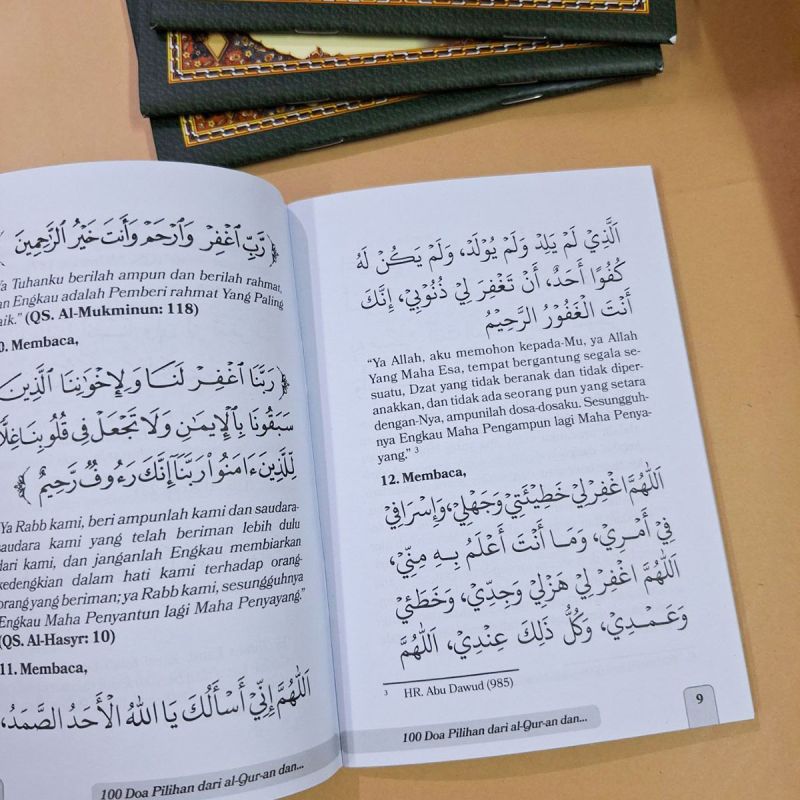 ﴿ رَبِّ ٱغْفِرْ وَٱرْحَمْ وَأَنتَ خَيْرُ ٱلرَّٰحِمِينَ ﴾
Ya Tuhanku berilah ampun dan berilah rahmat,
an Engkau adalah Pemberi rahmat Yang Paling
aik." (QS. Al-Mukminun: 118)
0. Membaca,
﴿ رَبَّنَا ٱغْفِرْ لَنَا وَلِإِخْوَٰنِنَا ٱلَّذِينَ
سَبَقُونَا بِٱلْإِيمَٰنِ وَلَا تَجْعَلْ فِى قُلُوبِنَا غِلًّا
لِّلَّذِينَ ءَامَنُوا۟ رَبَّنَآ إِنَّكَ رَءُوفٌ رَّحِيمٌ ﴾
Ya Rabb kami, beri ampunlah kami dan saudara-
saudara kami yang telah beriman lebih dulu
dari kami, dan janganlah Engkau membiarkan
kedengkian dalam hati kami terhadap orang-
orang yang beriman; ya Rabb kami, sesungguhnya
Engkau Maha Penyantun lagi Maha Penyayang."
(QS. Al-Hasyr: 10)
11. Membaca,
اَللّٰهُمَّ إِنِّيْ أَسْأَلُكَ يَا اَللّٰهُ الْأَحَدُ الصَّمَدُ،
100 Doa Pilihan dari al-Qur-an dan...
اَلَّذِيْ لَمْ يَلِدْ وَلَمْ يُوْلَدْ، وَلَمْ يَكُنْ لَهُ
كُفُوًا أَحَدٌ، أَنْ تَغْفِرَ لِيْ ذُنُوْبِيْ، إِنَّكَ
أَنْتَ الْغَفُوْرُ الرَّحِيْمُ
"Ya Allah, aku memohon kepada-Mu, ya Allah
Yang Maha Esa, tempat bergantung segala se-
suatu, Dzat yang tidak beranak dan tidak diper-
anakkan, dan tidak ada seorang pun yang setara
dengan-Nya, ampunilah dosa-dosaku. Sesungguh-
nya Engkau Maha Pengampun lagi Maha Penya-
yang." 3
12. Membaca,
اَللّٰهُمَّ اغْفِرْ لِيْ خَطِيْئَتِيْ وَجَهْلِيْ، وَإِسْرَافِيْ
فِيْ أَمْرِيْ، وَمَا أَنْتَ أَعْلَمُ بِهِ مِنِّيْ،
اَللّٰهُمَّ اغْفِرْ لِيْ هَزْلِيْ وَجِدِّيْ، وَخَطَئِيْ
وَعَمْدِيْ، وَكُلُّ ذٰلِكَ عِنْدِيْ، اَللّٰهُمَّ
3 HR. Abu Dawud (985)
9
100 Doa Pilihan dari al-Qur-an dan...